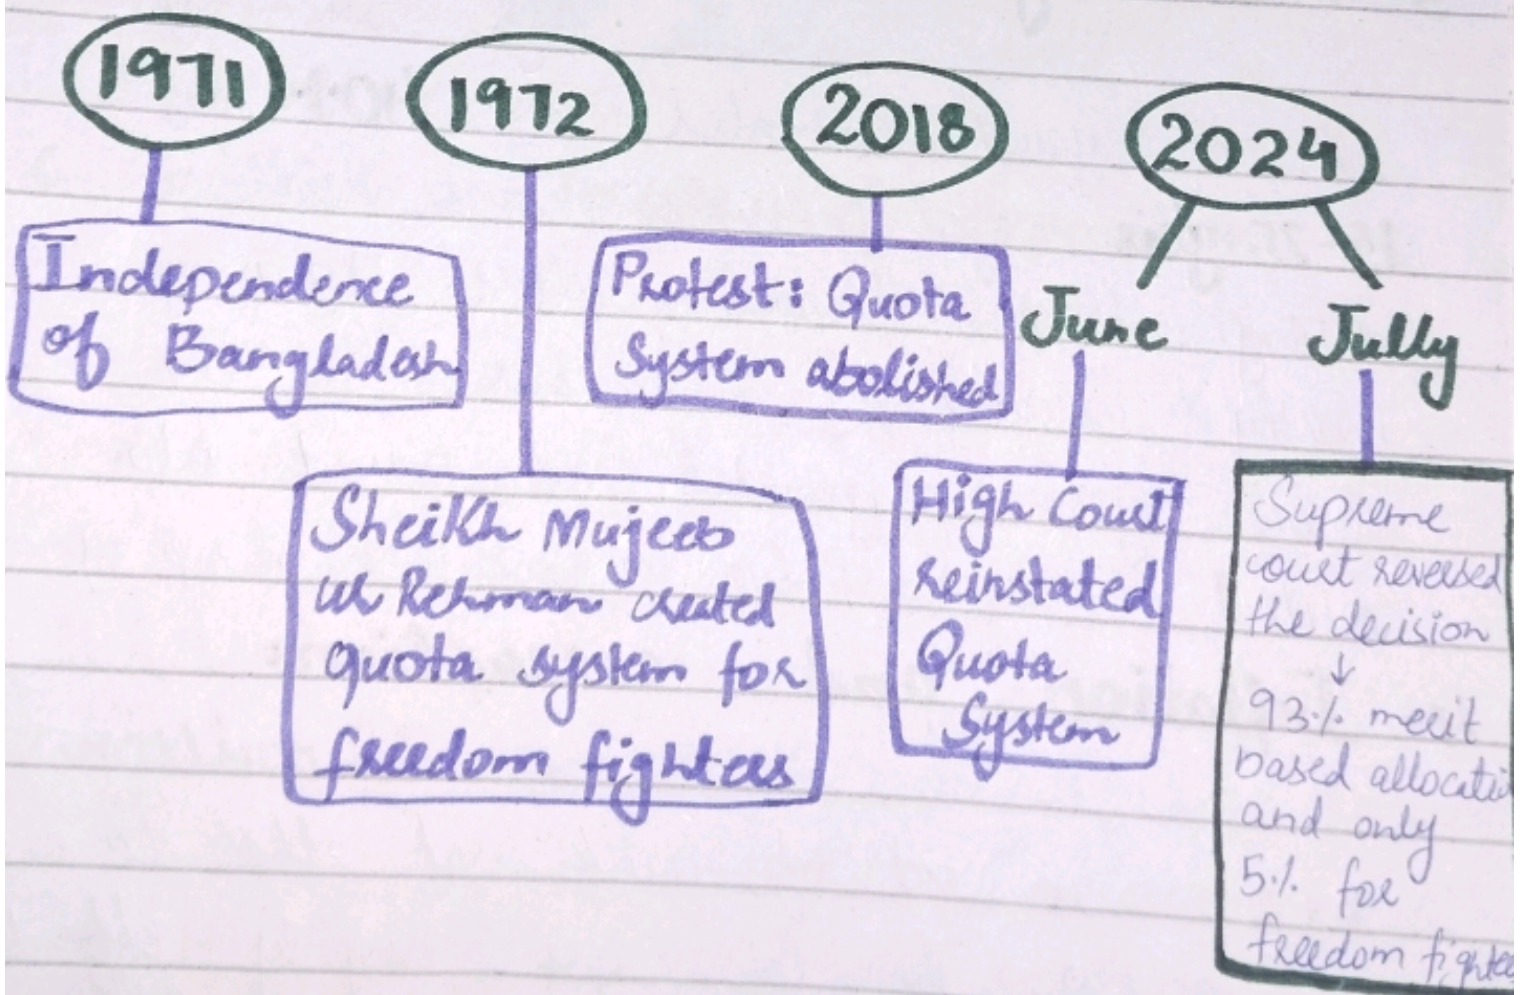 1971
Independence
of Bangladesh
1972
Sheikh Mujeeb
ur Rehman created
quota system for
freedom fighters
2018
Protest: Quota
System abolished
2024
June
High Court
reinstated
Quota
System
Jully
Supreme
court reversed
the decision
↓
93% merit
based allocatio
and only
5% for
freedom fighte